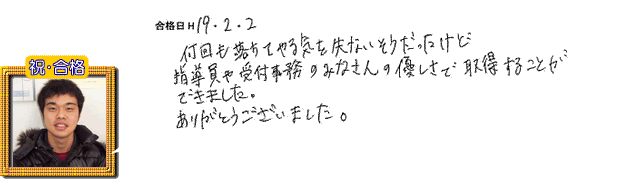 合格日H19.2.2
何回も落ちてやる気を失ないそうだったけど
祝・合格
指導員や受付事務のみなさんの優しさで取得することが
できました。
ありがとうございました。